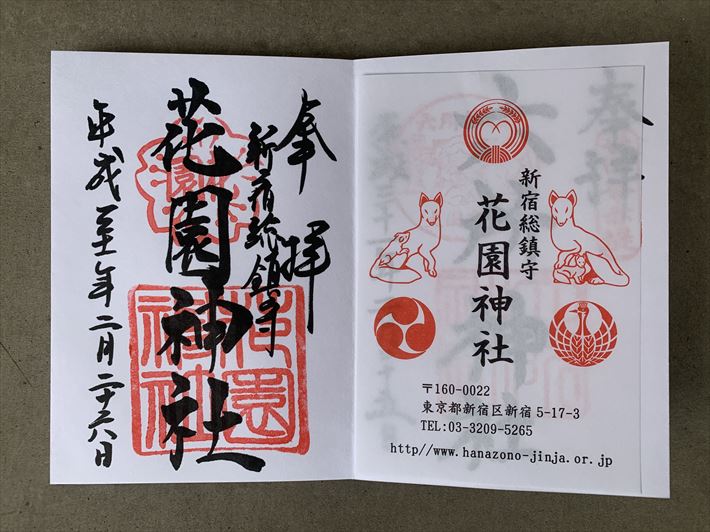 奉拝
新宿総鎮守
花園神社
平成三十一年二月二十六日
花園
神社
新宿総鎮守
花園神社
〒160-0022
東京都新宿区新宿 5-17-3
TEL:03-3209-5265
http//www.hanazono-jinja.or.jp